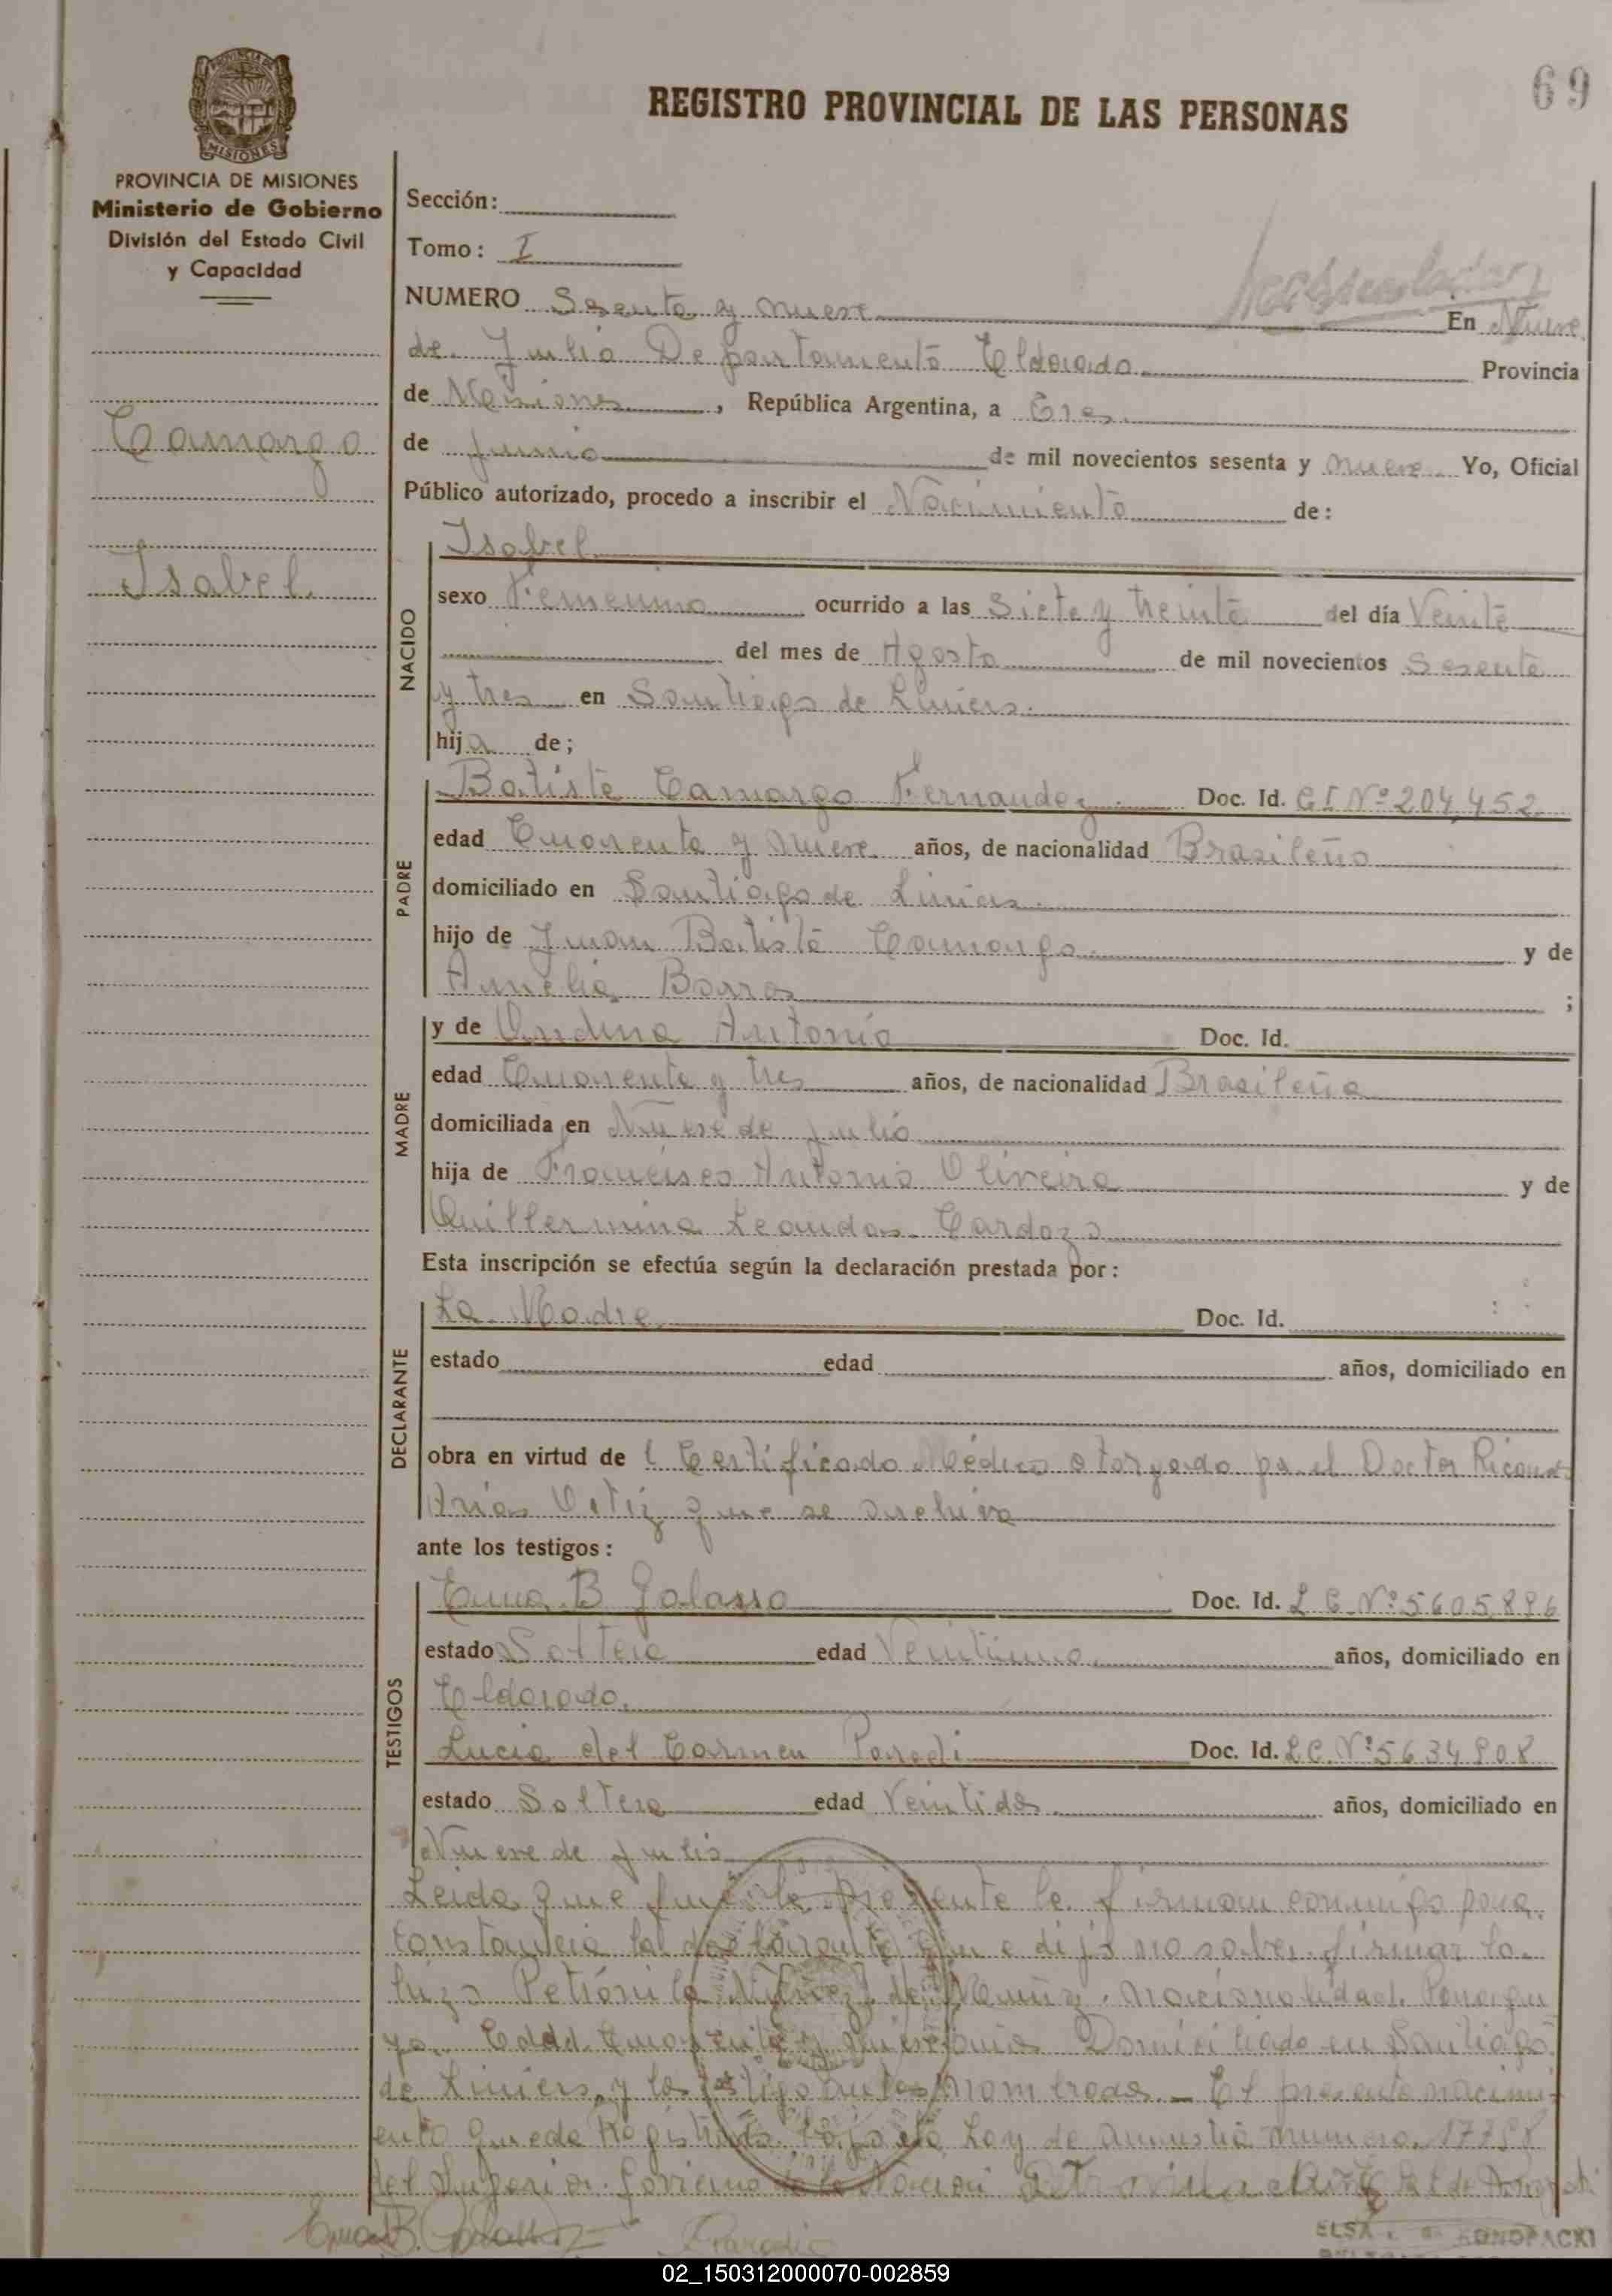 69
REGISTRO PROVINCIAL DE LAS PERSONAS
PROVINCIA DE MISIONES
MISIONES
PROVINCIA DE MISIONES
Ministerio de Gobierno
División del Estado Civil
y Capacidad
Camargo
Isabel.
Sección:
Tomo: I
NUMERO Sesenta y nueve En Nueve
de Julio Departamento Eldorado. Provincia
de Misiones, República Argentina, a Tres
de junio de mil novecientos sesenta y nueve Yo, Oficial
Público autorizado, procedo a inscribir el Nacimiento de:
NACIDO
Isabel
sexo Femenino ocurrido a las Siete y treinta del día Veinte
del mes de Agosto de mil novecientos Sesenta
y tres en Santiago de Liniers.
hija de;
PADRE
Batista Camargo Fernandez Doc. Id. CI Nº 204,452
edad Cuarenta y nueve años, de nacionalidad Brasileño
domiciliado en Santiago de Liniers.
hijo de Juan Batista Camargo y de
Amelia Barros ;
MADRE
y de Ondina Antonia Doc. Id.
edad Cuarenta y tres años, de nacionalidad Brasileña
domiciliada en Nueve de Julio
hija de Francisco Antonio Oliveira y de
Guillermina Leandas Cardozo
Esta inscripción se efectúa según la declaración prestada por:
DECLARANTE
La Madre Doc. Id.
estado edad años, domiciliado en
obra en virtud de l Certificado Médico otorgado por el Doctor Ricardo
Arias Ortiz que se archiva
ante los testigos:
TESTIGOS
Ema B Galasso Doc. Id. L C Nº 5605896
estado Soltera edad Veintiuno años, domiciliado en
Eldorado.
Lucia del Carmen Parodi Doc. Id. L C. Nº 5634908
estado Soltera edad Veintidos años, domiciliado en
Nueve de Julio
Leida que fue la presente la firman conmigo para
constancia la que dijo no saber firmar lo
hizo Petrónila Nuñez de Muñiz. nacionalidad Paragua
ya. Edad Cuarenta y nueve años Domiciliado en Santiago
de Liniers, y los testigo antes nombrados. - El presente nacimi-
ento queda Registrado bajo la Ley de amnistia numero. 17758
del Superior Govierno de la Nacion
Ema B. Galasso
Parodi
ELSA KONOPACKI
02_150312000070-002859